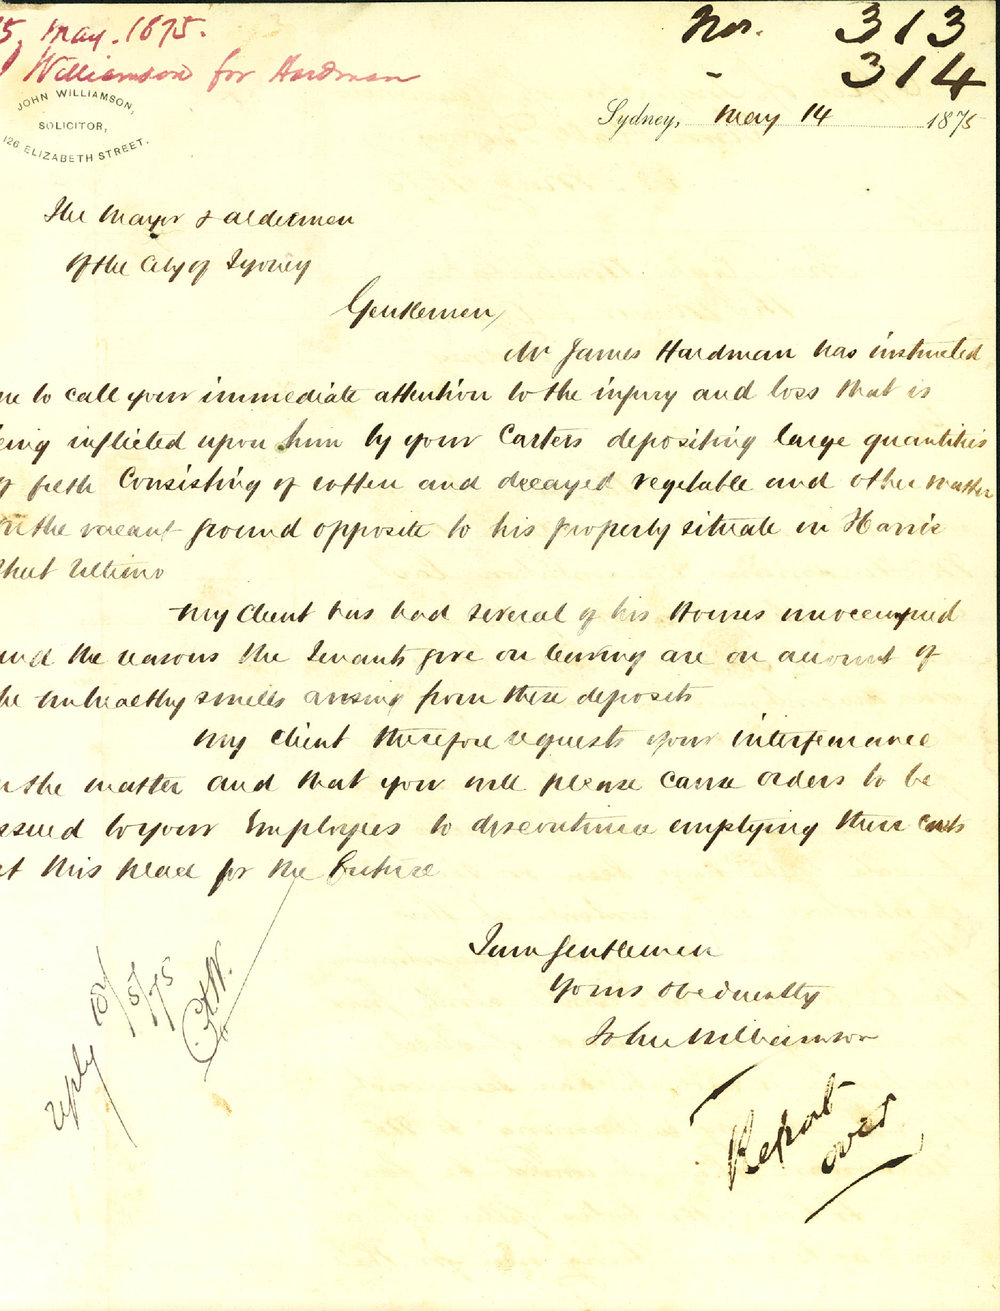 5, May. 1875.
Williamson for Hardman
Nos. 313
314
JOHN WILLIAMSON,
SOLICITOR,
126 ELIZABETH STREET.
Sydney, May 14 1875
The Mayor & Aldermen
of the City of Sydney
Gentlemen,
Mr James Hardman has instructed
me to call your immediate attention to the injury and loss that is
eing inflicted upon him by your Carters depositing large quantities
of filth Consisting of rotten and decayed vegetable and other matter
on the vacant ground opposite to his property situate in Harris
Street Ultimo
My Client has had several of his Houses unoccupied
and the reasons the Tenants give on leaving are on account of
he unhealthy smells arising from these deposits
My Client therefore requests your interference
in the matter and that you will please cause orders to be
ssued to your Employees to discontinue emptying their carts
at this place for the future
I am Gentlemen
Yours obediently
John Williamson
reply 18/5/75
Report
over